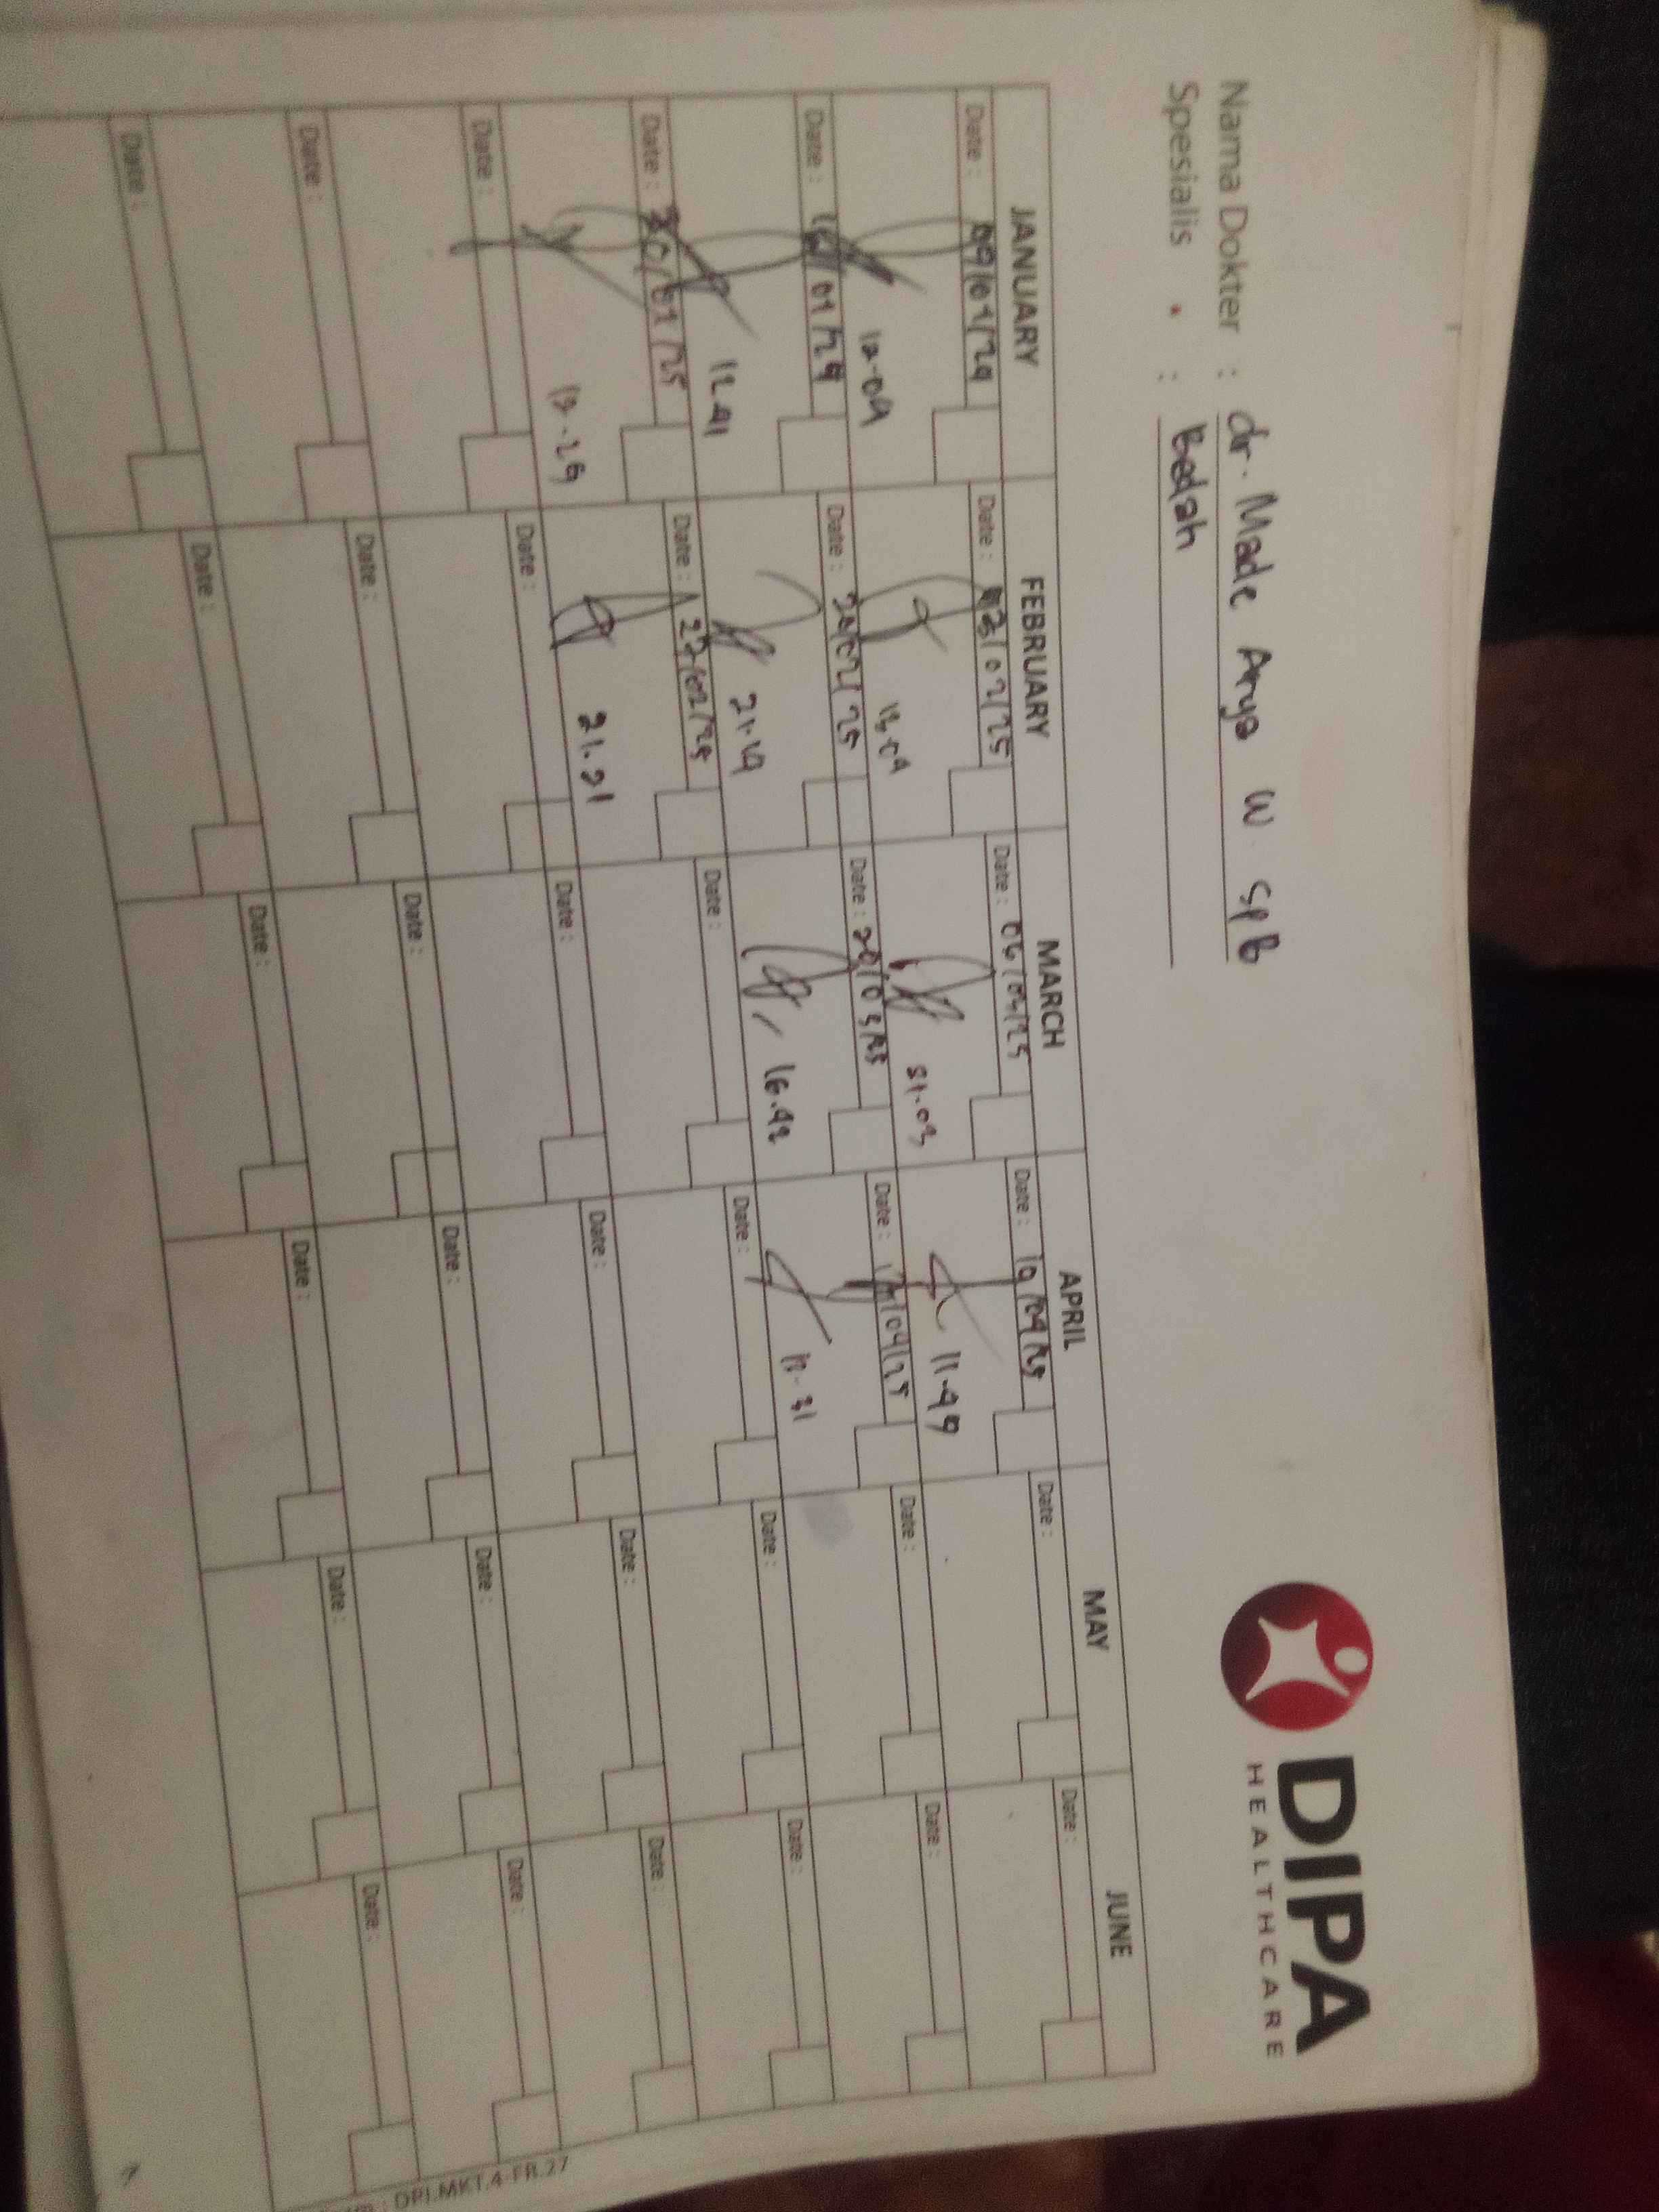 DIPA
HEALTHCARE
Nama Dokter : dr. Made Arya W SpB
Spesialis : Bedah
JANUARY FEBRUARY MARCH APRIL MAY JUNE
Date : 09/01/24 Date : 13/02/25 Date : 06/03/25 Date : 10/04/25 Date : Date :
12.09 13.09 21.03 11.49
Date : 16/01/24 Date : 20/02/25 Date : 20/03/25 Date : /04/25 Date : Date :
12.41 21.19 16.42 11.31
Date : 30/01/25 Date : 27/02/25 Date : Date : Date : Date :
13.29 21.21
Date : Date : Date : Date : Date : Date :
Date : Date : Date : Date : Date : Date :
Date : Date : Date : Date : Date : Date :
: DPI.MKT.4-FR.27